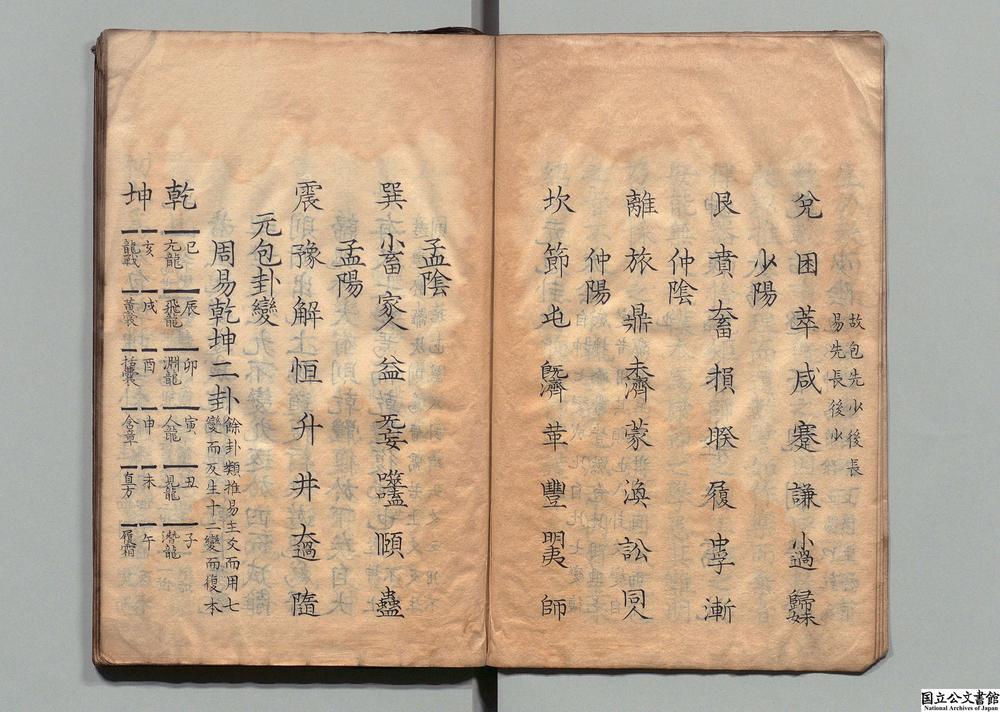 故包先少後長
易先長後少
兌困萃咸蹇謙小過歸妹
少陽
艮賁大畜損睽履中孚漸
仲陰
離旅鼎未濟蒙渙訟同人
仲陽
坎節屯既濟革豐明夷師
孟陰
巽小畜家人益无妄噬嗑頤蠱
孟陽
震豫解恒升井大過隨
元包卦變
周易乾坤二卦餘卦類推易主爻而用七
變而反生十二變而復本
乾
巳辰卯寅丑子
亢龍飛龍淵龍人龍見龍潛龍
坤
亥戌酉申未午
龍戰黃裳括囊含章直方履霜
国立公文書館
National Archives of Japan